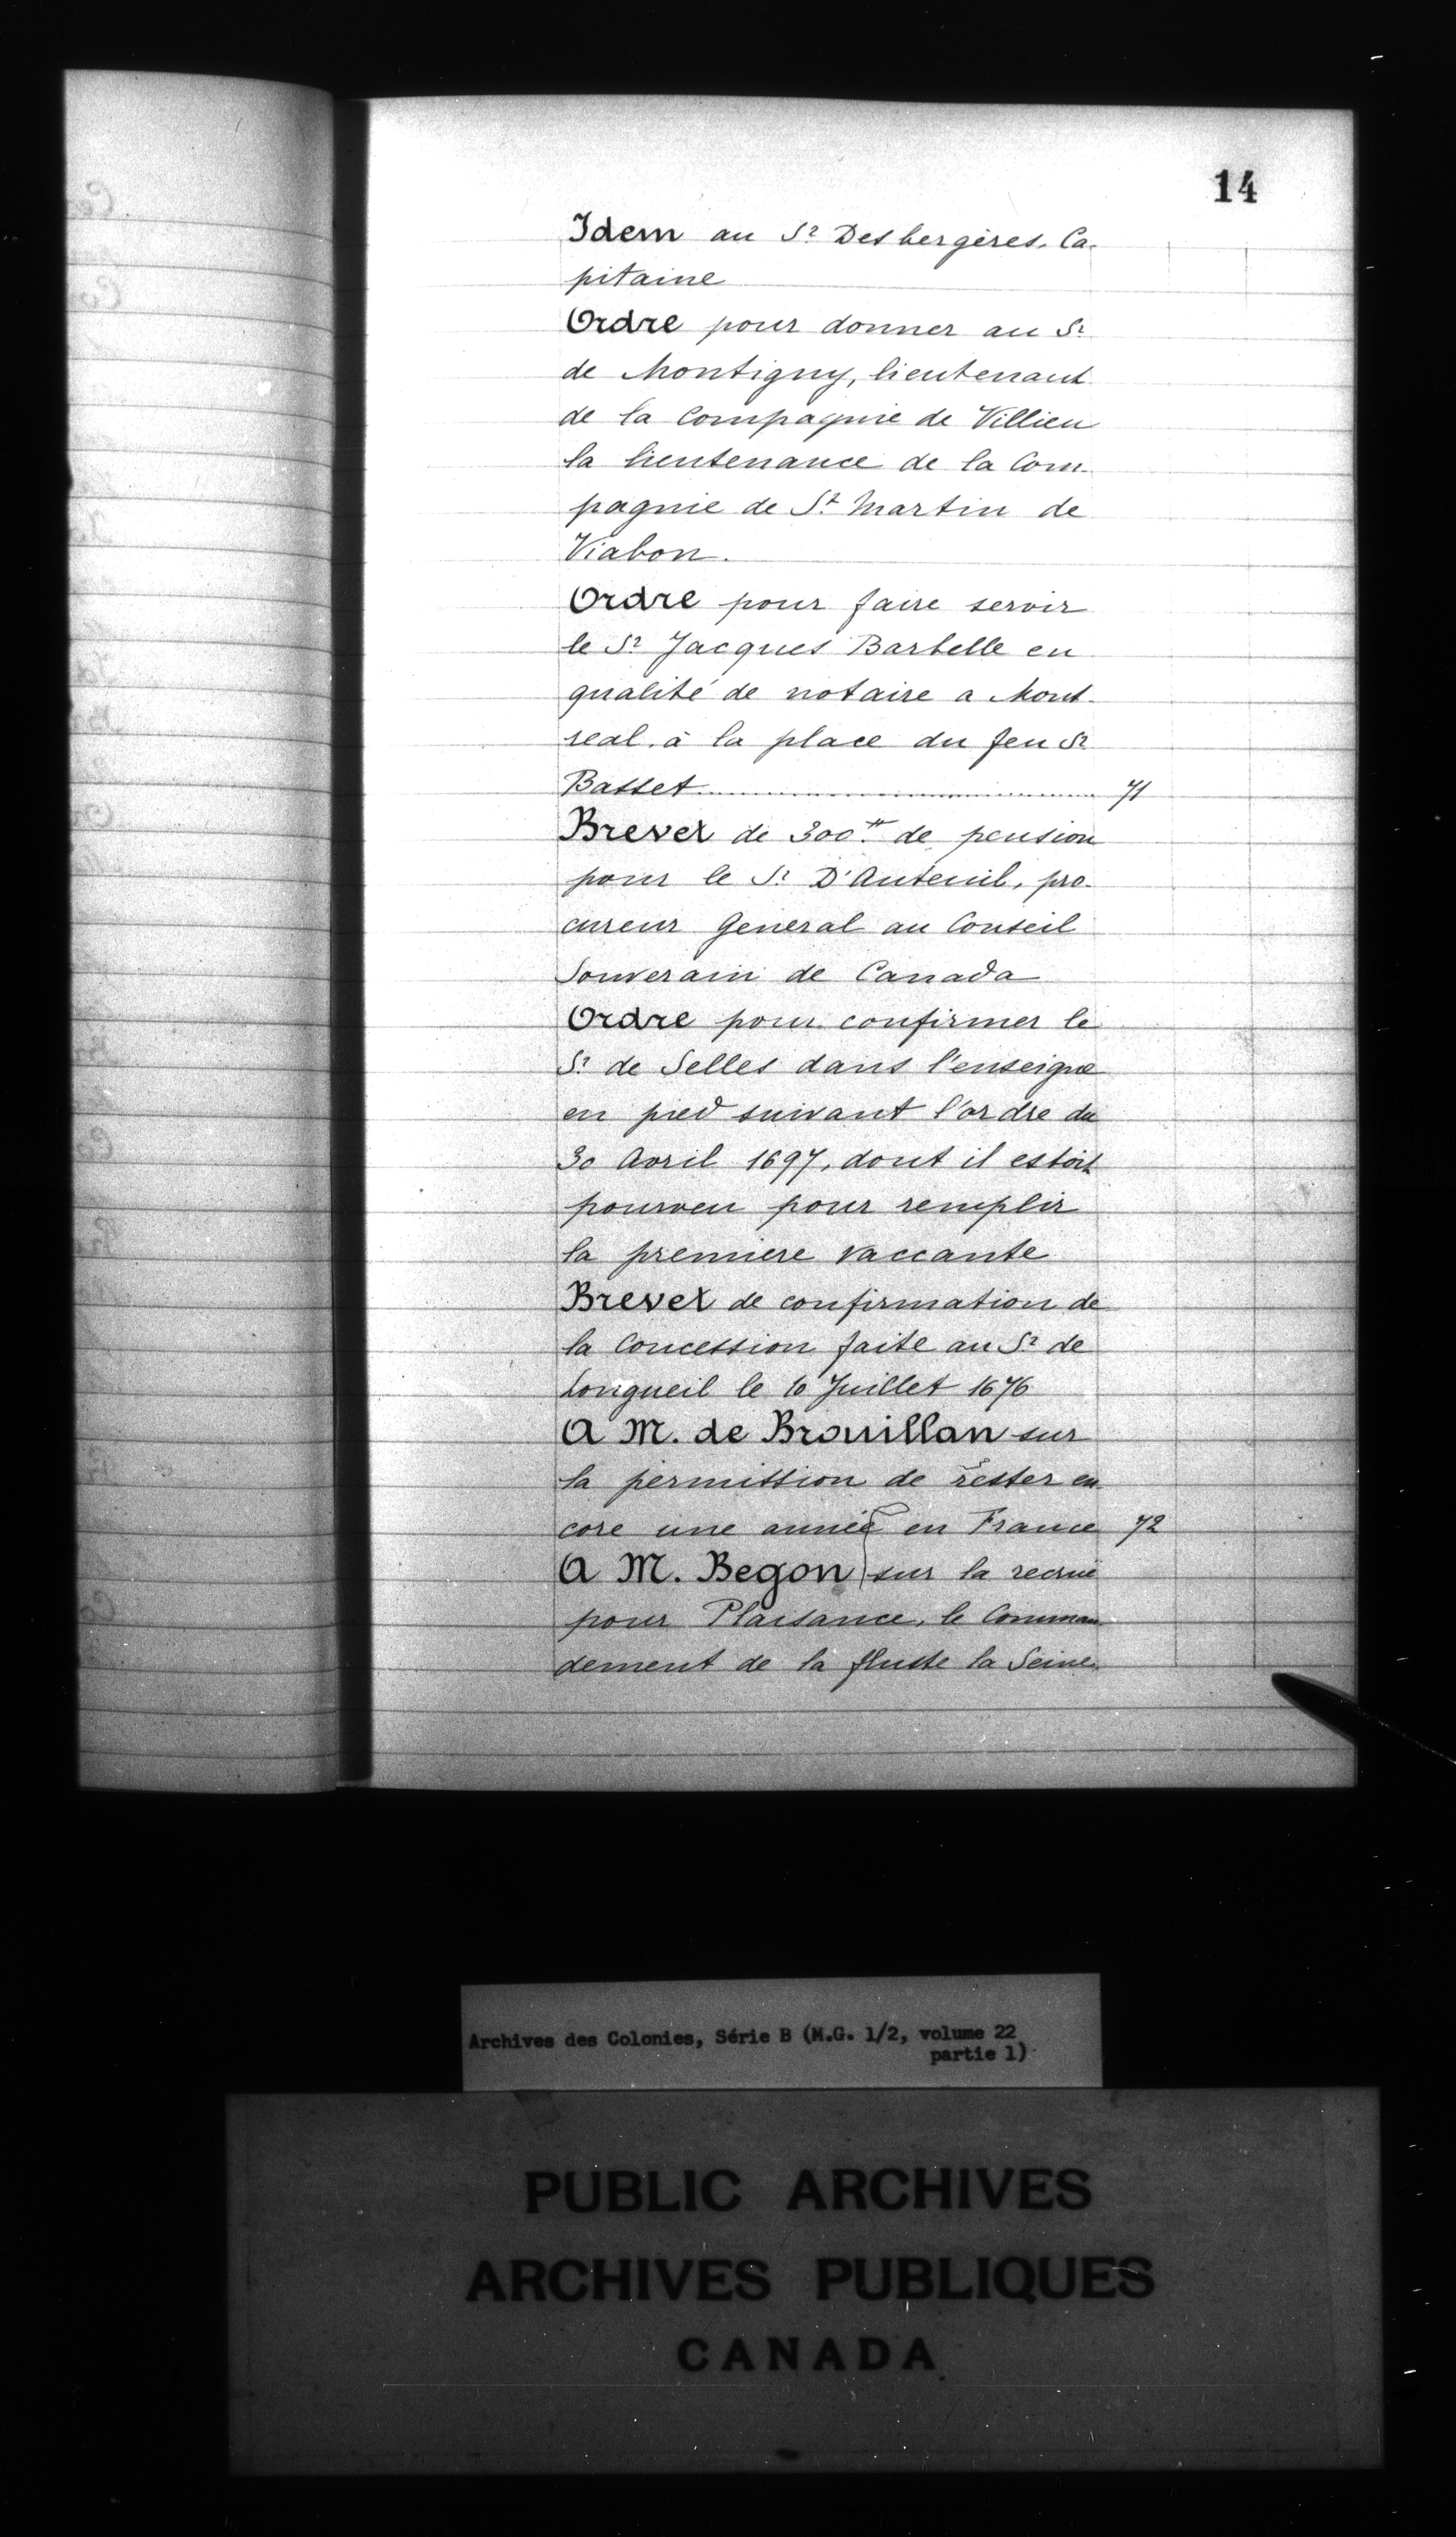 14
Idem au Sr Desbergères, Ca-
pitaine
Ordre pour donner au Sr
de Montigny, lieutenant
de la Compagnie de Villieu
la lieutenance de la Com-
pagnie de St Martin de
Viabon.
Ordre pour faire servir
le Sr Jacques Barbelle en
qualité de notaire a Mont-
real, à la place du feu Sr
Basset 71
Brevet de 300tt de pension
pour le Sr D'Auteuil, pro-
cureur General au Conseil
Souverain de Canada
Ordre pour confirmer le
Sr de Selles dans l'enseigne
en pied suivant l'ordre du
30 Avril 1697, dont il estoit
pourveu pour remplir
la premiere vaccante
Brevet de confirmation de
la Concession faite au Sr de
Longueil le 10 Juillet 1676
A M. de Brouillan sur
la permission de rester en-
core une année en France 72
A M. Begon sur la recrue
pour Plaisance, le Comman-
dement de la fluste la Seine,
Archives des Colonies, Série B (M.G. 1/2, volume 22
partie 1)
PUBLIC ARCHIVES
ARCHIVES PUBLIQUES
CANADA